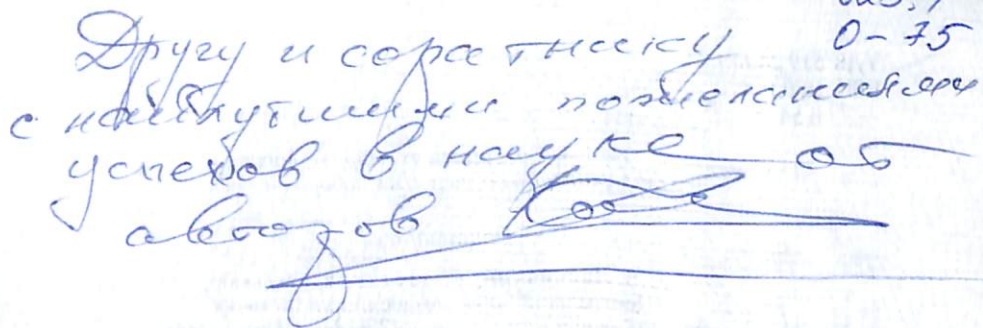 О-75
Другу и соратнику
с наилучшими пожеланиями
успехов в науке от
авторов